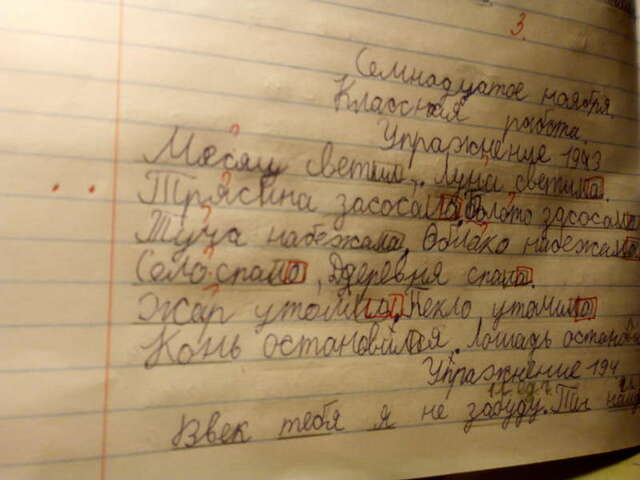 3.
Семнадцатое ноября
Классная работа.
Упражнение 193
Месяц светил. Луна светила.
Трясина засосала. Болото засосало
Туча набежала. Облако набежало
Село спало, Деревня спала.
Жар утомил. Пекло утомило
Конь остановился. Лошадь останов
Упражнение 194
1л. ед.ч.
Ввек тебя я не забуду. Ты